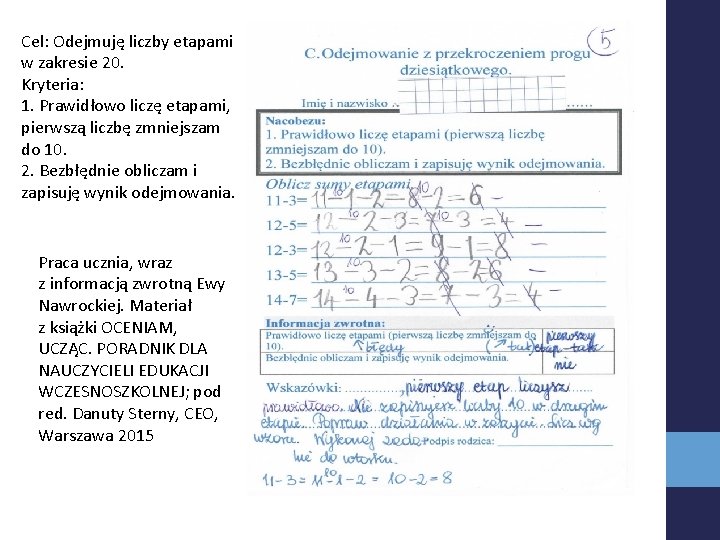 Cel: Odejmuję liczby etapami
w zakresie 20.
Kryteria:
1. Prawidłowo liczę etapami,
pierwszą liczbę zmniejszam
do 10.
2. Bezbłędnie obliczam i
zapisuję wynik odejmowania.
Praca ucznia, wraz
z informacją zwrotną Ewy
Nawrockiej. Materiał
z książki OCENIAM,
UCZĄC. PORADNIK DLA
NAUCZYCIELI EDUKACJI
WCZESNOSZKOLNEJ; pod
red. Danuty Sterny, CEO,
Warszawa 2015
5
C.Odejmowanie z przekroczeniem progu
dziesiątkowego.
Imię i nazwisko
Nacobezu:
1. Prawidłowo liczę etapami (pierwszą liczbę
zmniejszam do 10).
2. Bezbłędnie obliczam i zapisuję wynik odejmowania.
Oblicz sumy etapami.
11-3= 11-1-2=8-2=6
12-5= 12-2-3=7-3=4
12-3= 12-2-1=9-1=8
13-5= 13-3-2=8-2=6
14-7= 14-4-3=7-3=4
Informacja zwrotna:
Prawidłowo liczę etapami (pierwszą liczbę zmniejszam do
10). błędy
pierwszy
etap - tak
Bezbłędnie obliczam i zapisuję wynik odejmowania.
nie
Wskazówki: pierwszy etap liczysz
prawidłowo. Nie zapisujesz liczby 10 w drugim
etapie. Popraw działania w zeszycie. Licz wg
wzoru. Wykonaj
Podpis rodzica:
do wtorku.
11-3=11-1-2=10-2=8